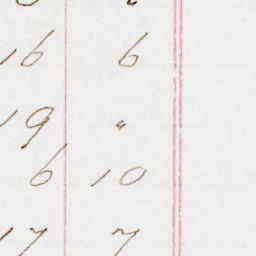 16 6
19 "
6 10
17 7